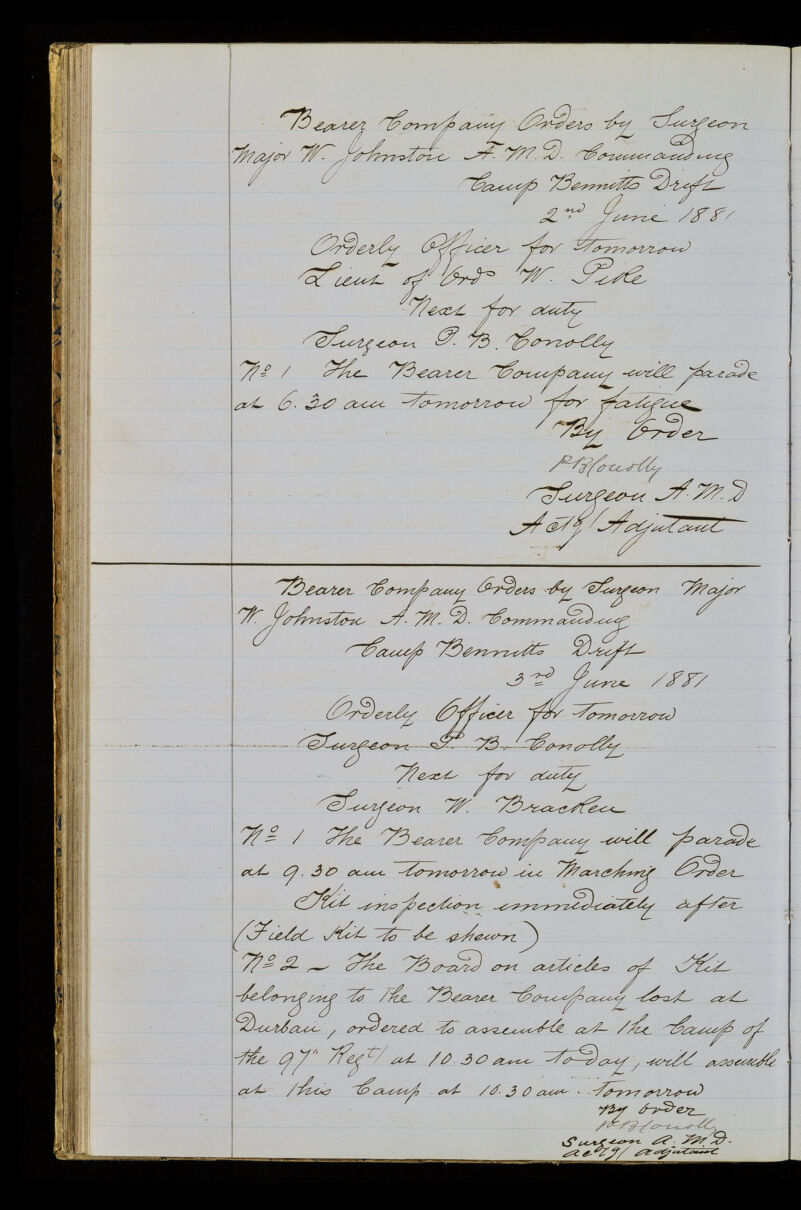 Bearer Company Orders by Surgeon
Major W. Johnston A. M. D. Commanding
Camp Bennitts Drift
2nd June 1881
Orderly Officer for tomorrow
Lieut of Ords W. Pike
Next for duty
Surgeon P. B. Conolly
No 1 The Bearer Company will parade
at 6.30 am tomorrow for fatigue
By Order
PBConolly
Surgeon A. M. D
Actg/ Adjutant
Bearer Company Orders by Surgeon Major
W. Johnston A. M. D. Commanding
Camp Bennitts Drift
3rd June 1881
Orderly Officer for tomorrow
Surgeon P. B. Conolly
Next for duty
Surgeon W. Bracken
No 1 The Bearer Company will parade
at 9.30 am tomorrow in Marching Order
Kit inspection immediately after
(Field Kit to be shewn)
No 2 - The Board on articles of Kit
belonging to the Bearer Company lost at
Durban, ordered to assemble at the Camp of
the 97" Regt/ at 10.30 am to day, will assemble
at this Camp at 10.30 am. tomorrow
By order
PBConolly
Surgeon A. M. D.
Actg/ Adjutant